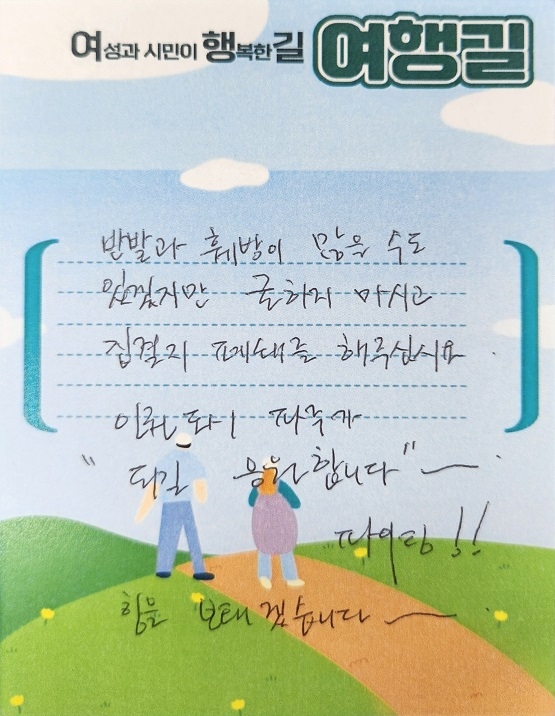 여성과 시민이 행복한길 여행길
반발과 훼방이 많을 수도
있겠지만 굴하지 마시고
집결지 폐쇄를 해주십시요.
파주가
"되길 응원합니다"
파이팅!!
힘을 보태겠습니다